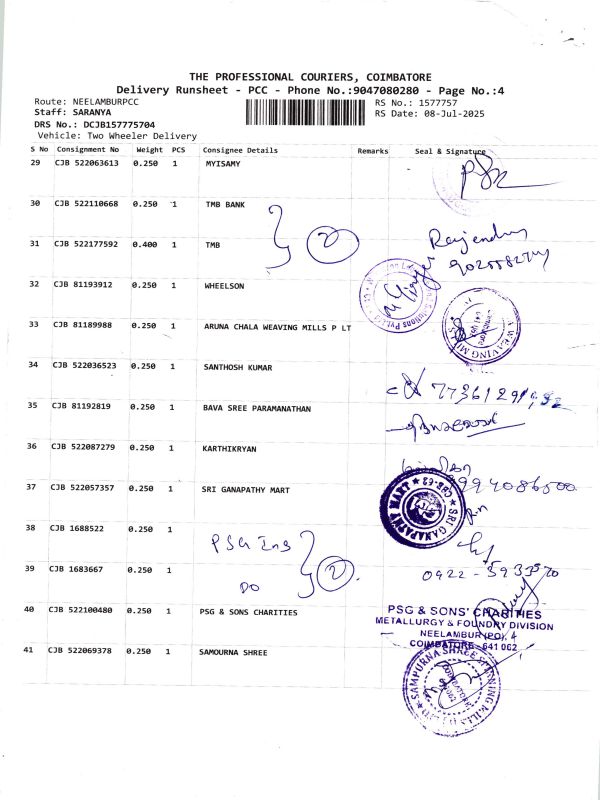 THE PROFESSIONAL COURIERS, COIMBATORE
Delivery Runsheet - PCC - Phone No.:9047080280 - Page No.:4
Route: NEELAMBURPCC
RS No.: 1577757
Staff: SARANYA
RS Date: 08-Jul-2025
DRS No.: DCJB157775704
Vehicle: Two Wheeler Delivery
S No Consignment No Weight PCS Consignee Details Remarks Seal & Signature
29 CJB 522063613 0.250 1 MYISAMY
30 CJB 522110668 0.250 1 TMB BANK
2
31 CJB 522177592 0.400 1 TMB
Rajendran
32 CJB 81193912 0.250 1 WHEELSON
33 CJB 81189988 0.250 1 ARUNA CHALA WEAVING MILLS P LT
34 CJB 522036523 0.250 1 SANTHOSH KUMAR
35 CJB 81192819 0.250 1 BAVA SREE PARAMANATHAN
36 CJB 522087279 0.250 1 KARTHIKRYAN
37 CJB 522057357 0.250 1 SRI GANAPATHY MART
SRI GANAPATHI MART
CBE-62
38 CJB 1688522 0.250 1
PSG Ins
2
39 CJB 1683667 0.250 1
DO
40 CJB 522100480 0.250 1 PSG & SONS CHARITIES
PSG & SONS' CHARITIES
METALLURGY & FOUNDRY DIVISION
NEELAMBUR (PO),
COIMBATORE - 641 062
41 CJB 522069378 0.250 1 SAMOURNA SHREE
SAMPURNA SHREE SPINNING MILLS
COIMBATORE